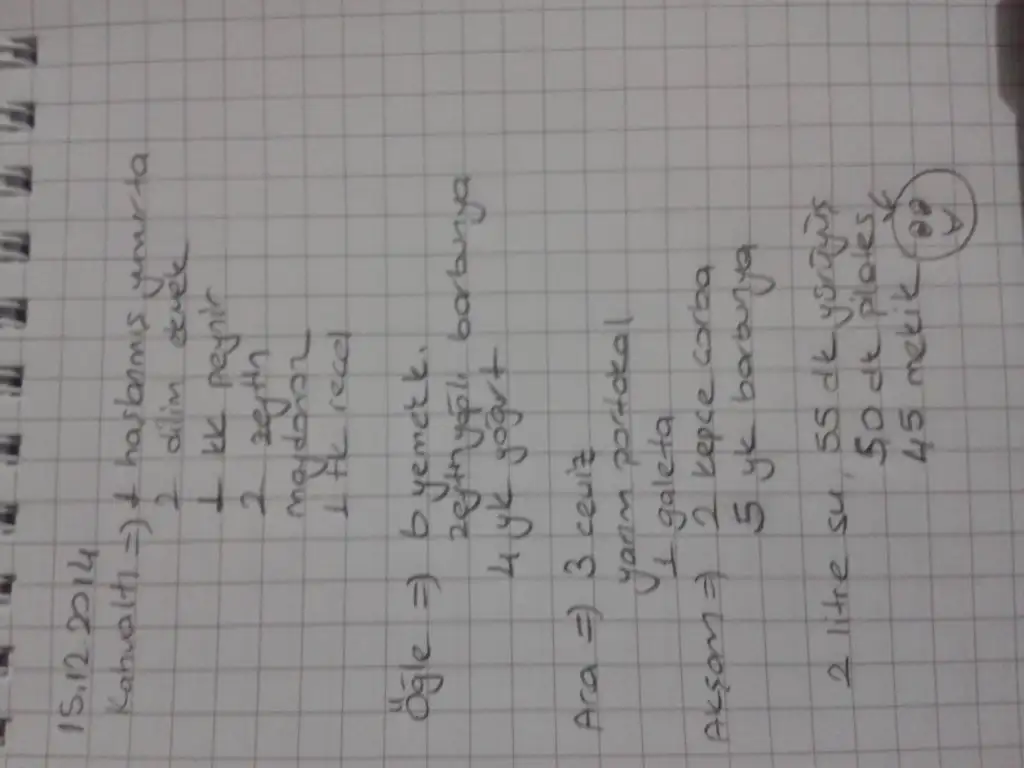 15.12.2014
Kahvaltı => 1 haşlanmış yumurta
2 dilim ekmek
1 kk peynir
2 zeytin
maydanoz
1 tk reçel
Öğle => b yemek.
zeytinyağlı barbunya
4 yk yoğrt
Ara => 3 ceviz
yarım portakal
1 galeta
Akşam => 2 kepçe çorba
5 yk barbunya
2 litre su, 55 dk yürüyüş
50 dk pilates
45 mekik